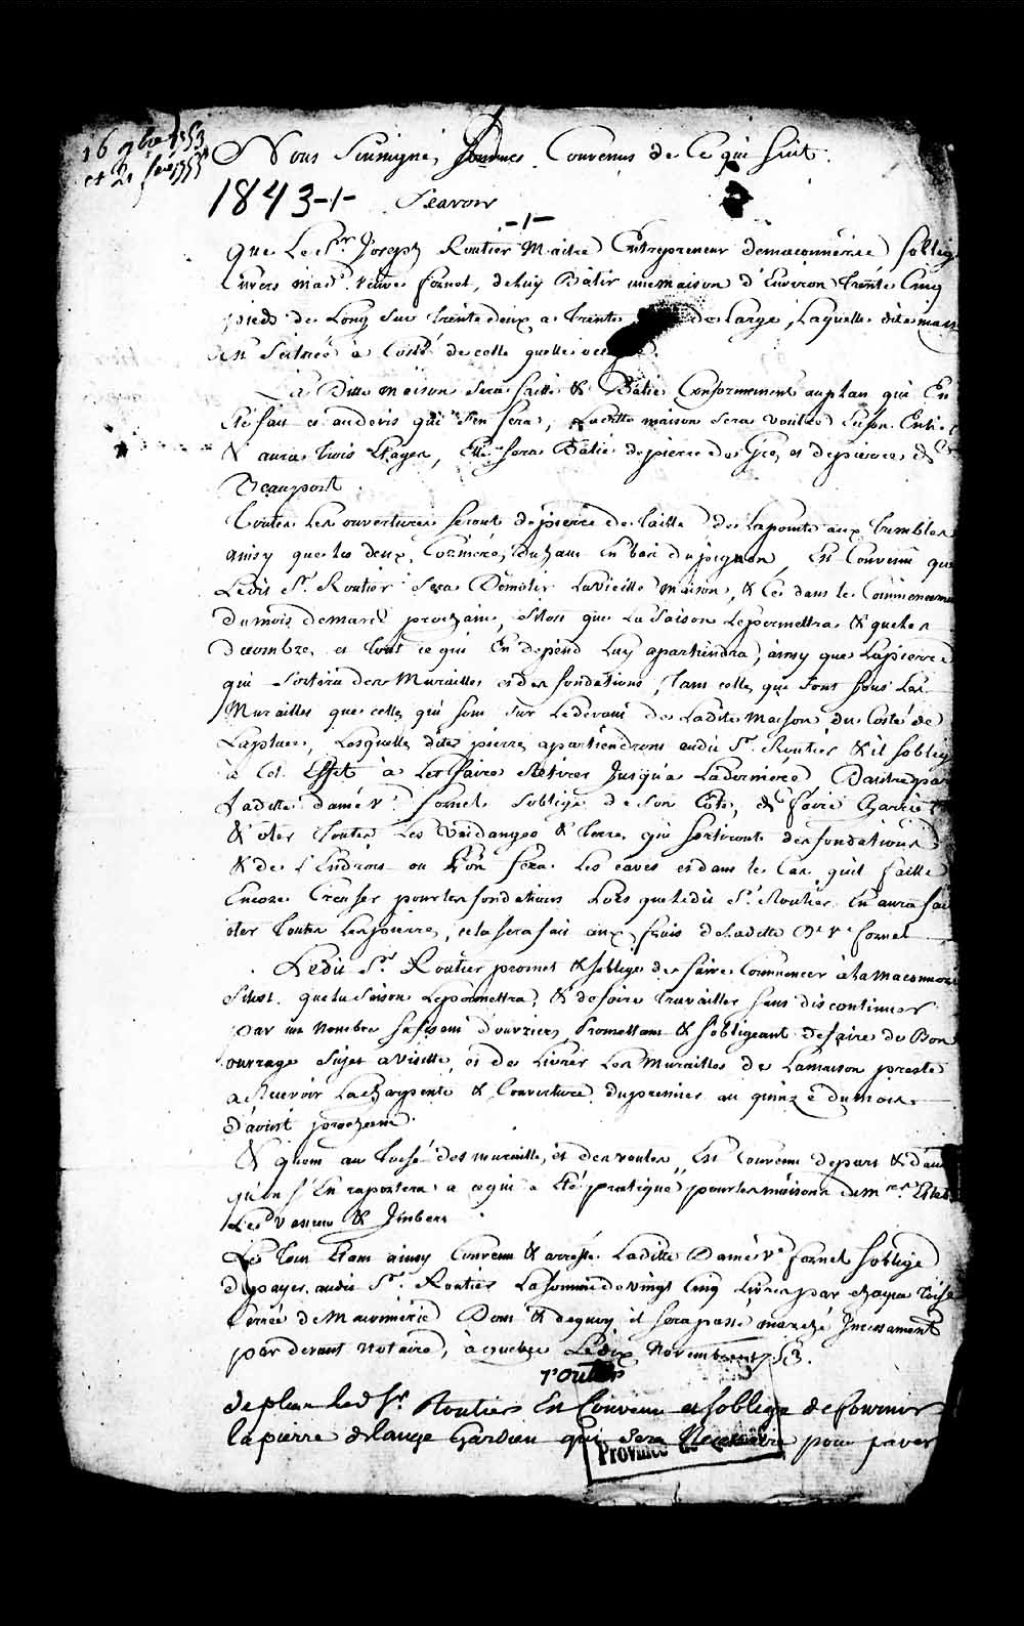 16 9bre 1753
et 21 fev 1755
Nous Soussignés, Sommes Convenus de Ce qui Suit.
1843-1- Scavoir
-1-
Que Le Sr. Joseph Routier Maitre Entrepreneur demaconnerie soblig
Envers mad. veuve fornel, deluy Batir une maison d'Environ trente Cinq
pieds de Long sur trente deux a trente de large, Laquelle dite mais
est Scituée a Costé de celle quelle occupe.
La Ditte maison sera faitte & Batie Conformement auplan qui En
Eté fait et audevis qui s'en fera, Laditte maison sera voutée
& aura trois Etages, Elle sera Batie depierre des Grez et depierres de
Beauport.
Toutes Les ouvertures seront depierre de taille de Lapointe aux trembles
ainsy que les deux Corniches, du haut En bas dupignon, Est Convenu que
Ledit Sr. Routier fera Démolir Lavieille maison, & Ce dans le Commencemen
dumois demars prochain, sitost que La Saison Lepermettra & que les
decombres, et tout ce qui En depend Luy apartiendra, ainsy que Lapierre
qui Sortira des Murailles et des fondations, tant celles que sont sous Les
Murailles que celles qui sont sur Ledevant de Ladite Maison du Costé de
Laplace, Lesquelles dites pierres apartiendront audit Sr. Routier & il soblig
à Cet Effet à Les faire Retirer Jusqu'a Laderniere Dautre par
Laditte dame Ve. fornel soblige de son Coté, de faire Charrier
& oter toutes Les Vuidanges & terres qui sortiront des fondations
& de L'Endroit ou L'on fera Les caves et dans le Cas quil faille
Encore Creuser pour les fondations Lors queledit Sr. Routier En aura fai
oter toutes Les pierres, cela sera fait aux frais deLaditte De. Ve. fornel
Ledit Sr. Routier promet & soblige de faire Commencer à la maconnerie
Sitost que la Saison Lepermettra, & de faire travailler sans discontinuer
par un nombre sufisant d'ouvriers, Promettant & sobligeant defaire de Bon
ouvrage Sujet a Visitte, et de Livrer Les Murailles de Lamaison preste
a Recevoir La Charpente & Couverture, dupremier au quinze dumois
d'aoust prochain.
& quant au toisé des murailles, et des voutes, Est Convenu depart & d'aut
qu'on s'En raportera a cequi a Eté pratiqué pour les maisons de mrs.
Levasseur & Jmbert
Le tout Etant ainsy Convenu & arresté Laditte Dame Ve fornel soblige
depayer audit Sr. Routier Lasomme de vingt Cinq Livres par chaque toise
de Maconnerie Dont & dequoy il sera passé marché Jncessament
par devant notaire, à quebec Le dix Novembre 1753.
routier
de plus led Sr Routier Est Convenu et soblige de fournir
la pierre delange Gardien qui sera Necessaire pour paver
Province de